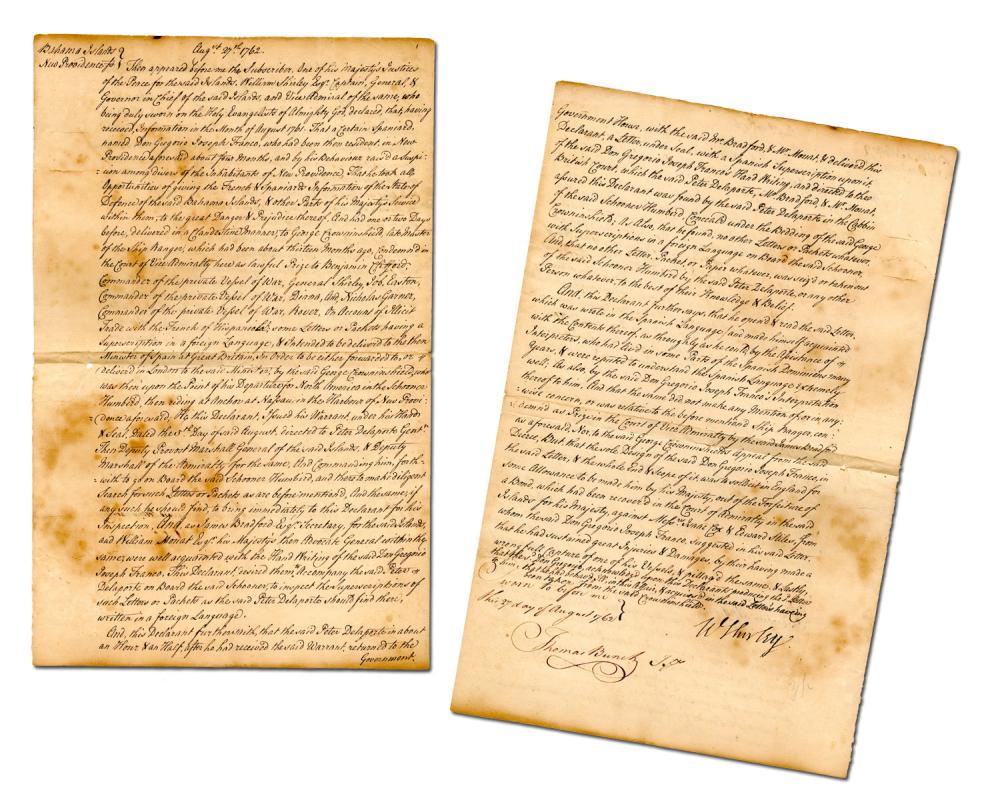 Bahama Islands } Augst 27th 1762.
New Providence ss } Then appeared before me the Subscriber, One of his Majesty's Justices
of the Peace for the said Islands, William Shirley Esqr. Captain, General, &
Governor in Chief of the said Islands, and Vice Admiral of the same, who
being duly sworn on the Holy Evangelists of Almighty God, declared, that, having
received Information in the Month of August 1761. That a Certain Spaniard,
named Don Gregorio Joseph Franco, who had been then resident, in New
Providence aforesaid about four Months, and by his Behaviour rais'd a Suspi-
-cion among divers of the Inhabitants of New Providence, That he took all
Opportunities of giving the French & Spaniards Information of the State of
Defence of the said Bahama Islands, & other Parts of his Majesty's Service
within them, to the great Danger & Prejudice thereof, And had one or two Days
before, delivered in a Clandestine Manner, to George Crowninshield, late Master
of the Ship Ranger, which had been about thirteen Months ago, Condemn'd in
the Court of Vice Admiralty here as lawful Prize to Benjamin
Commander of the private Vessel of War, General Shirley, Job Easton,
Commander of the private Vessel of War, Diana, and Nicholas Garner,
Commander of the private Vessel of War, Rover, On Account of Illicit
Trade with the French of Hispaniola; some Letters or Packets having a
Superscription in a foreign Language, & Intended to be delivered to the then
Minister of Spain at Great Britain, In Order to be either forwarded to, or
deliver'd in London to the said Minister, by the said George Crowninshield, who
was then upon the Point of his Departure for North America in the Schooner
Humbird, then riding at Anchor at Nassau in the Harbour of New Provi-
-dence aforesaid. He this Declarant, Issued his Warrant, under his Hand
& Seal, Dated the 5th Day of said August, directed to Peter Delaporte Gentn.
Then Deputy Provost Marshall General of the said Islands, & Deputy
Marshall of the Admiralty for the same, And Commanding him, forth-
-with to go on Board the said Schooner Humbird, and there to make diligent
Search for such Letters or Packets as are before mention'd, And the same, if
any such he should find, to bring immediately to this Declarant for his
Inspection, And, as James Bradford Esqr. Secretary, for the said Islands,
and William Mouat Esqr. his Majesty's then Advocate General within the
same, were well acquainted with the Hand Writing of the said Don Gregorio
Joseph Franco, This Declarant, desired them to Accompany the said Peter
Delaporte on Board the said Schooner, to inspect the Superscriptions of
such Letters or Packets as the said Peter Delaporte should find there,
written in a foreign Language.
And, this Declarant further saith, that the said Peter Delaporte in about
an Hour & an Half, after he had received the said Warrant, returned to the
Government
Government House, with the said Mr. Bradford, & Mr. Mouat, & delivered this
Declarant, a Letter, under Seal, with a Spanish Superscription upon it,
of the said Don Gregorio Joseph Franco's Hand Writing, and directed to the
British Court, which the said Peter Delaporte, Mr. Bradford & Mr. Mouat,
assured this Declarant was found by the said Peter Delaporte in the Cabbin
of the said Schooner Humbird, Conceal'd under the Bedding of the said George
Crowninshield, As Also, that he found, no other Letters or Packets whatever,
with Superscriptions in a foreign Language on Board the said Schooner,
And, that no other Letter, Packet, or Paper whatever, was seiz'd or taken out
of the said Schooner Humbird by, the said Peter Delaporte, or any other
Person whatever, to the best of their Knowledge & Belief.
And, this Declarant further says, that he open'd & read the said Letter,
which was wrote in the Spanish Language, and made himself acquainted
with the Contents thereof, as throughly as he cou'd, by the Assistance of
Interpreters, who had lived in some Parts of the Spanish Dominions many
Years, & were reputed to understand the Spanish Language Extremely
well, As also, by the said Don Gregorio Joseph Franco's Interpretation
thereof to him. And that the same did not make any Mention of, or in any
-wise concern, or was relative to the before mention'd Ship Ranger, con-
-demn'd as Prize in the Court of Vice Admiralty by the said James Bradford
as aforesaid, Nor, to the said George Crowninshield's Appeal from the said
Decree, But, that the sole Design of the said Don Gregorio Joseph Franco, in
the said Letter, & the whole End & Scope of it, was to sollicit in England for
some Allowance to be made him by his Majesty, out of the Forfeiture of
a Bond, which had been recover'd in the Court of Admiralty in the said
Islands for his Majesty, against Messrs. Isaac Cox & Edward Stiles, from
whom the said Don Gregorio Joseph Franco suggested in his said Letter,
that he had sustained great Injuries & Damages, by their having made a
wrongfull Capture of one of his Vessels, & pillag'd the same, & Lastly,
that the said Don Gregorio, acknowledged upon this Declarant's producing the Letter
to him, that
been taken the said Crowninshield.
Sworn to before me }
this 27 day of August 1762 }
W Shirley.
Thomas Bunch J.P